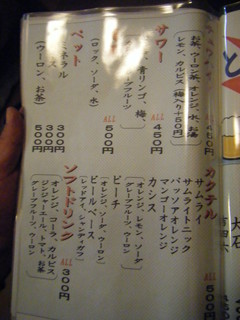 お茶、ウーロン茶、オレンジ、水、お湯
レモン、カルピス（梅入り+50円）
サワー
ALL 450円
青リンゴ、梅、
グレープフルーツ
ALL 500円
（ロック、ソーダ、水）
ペット
300円
300円
500円
（ウーロン、お茶）
カクテル
ALL 500円
サムライ
サムライトニック
パッソアオレンジ
マンゴーオレンジ
カシス
（オレンジ、レモン、ソーダ
グレープフルーツ、ウーロン）
ピーチ
（オレンジ、ソーダ、ウーロン）
ビールベース
（レッドアイ、シャンディガフ）
ソフトドリンク
ALL 300円
オレンジ、コーラ、カルピス
ジンジャーエール、トマト、お茶
グレープフルーツ、ウーロン
と
大石